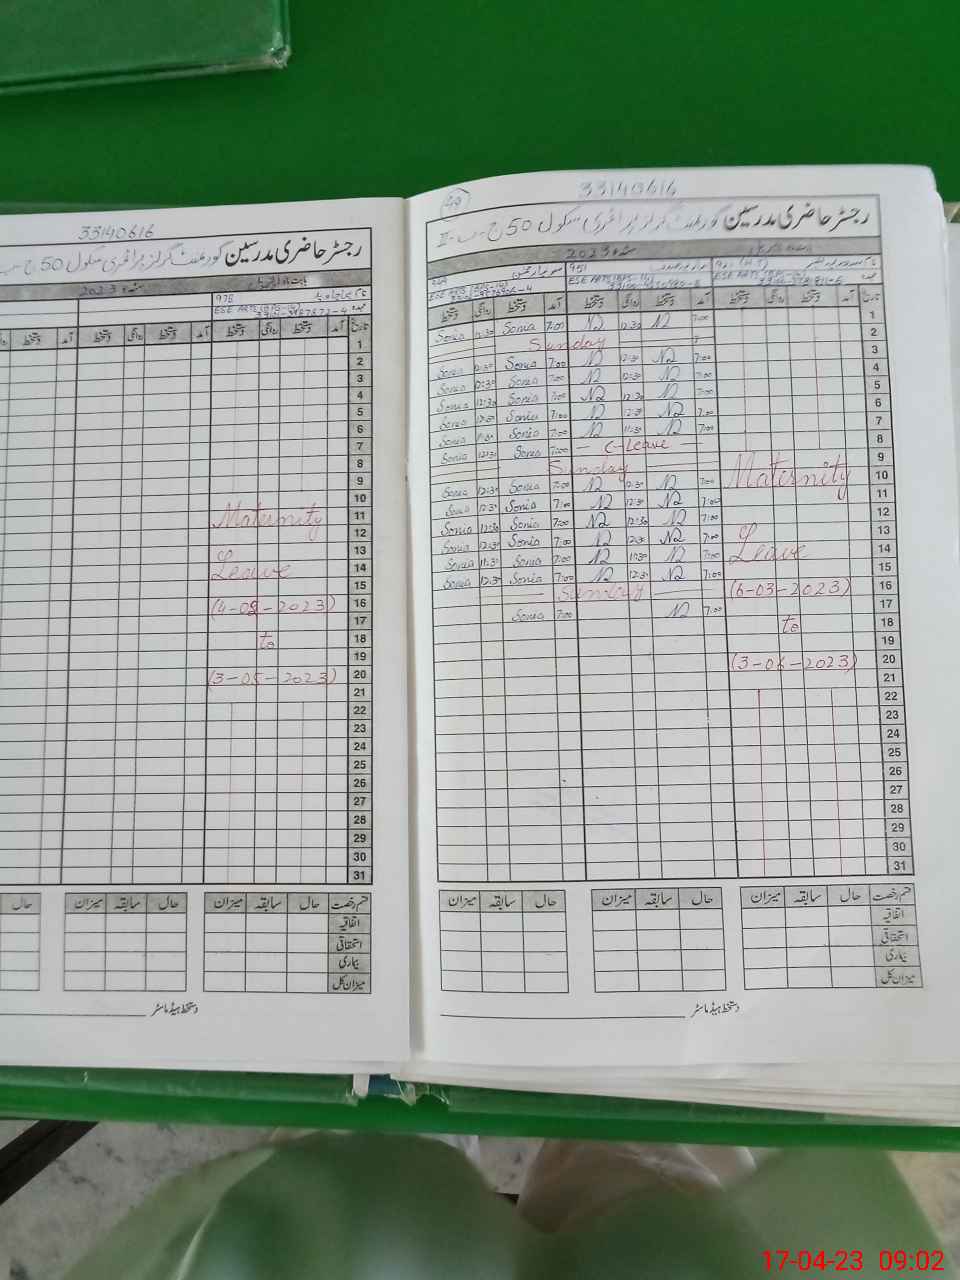 33140616
رجسٹر حاضری مدرسین گورنمنٹ گرلز پرائمری سکول 50 ج-ب
2023
978
ESE ARTS (BPS-14)
تاریخ آمد دستخط روانگی دستخط آمد دستخط روانگی دستخط آمد
1
2
3
4
5
6
7
8
9
10
11 Maternity
12
13
14 Leave
15
16 (4-02-2023)
17
18 to
19
20 (3-05-2023)
21
22
23
24
25
26
27
28
29
30
31
قسم رخصت حال سابقہ میزان حال سابقہ میزان حال
اتفاقیہ
استحقاقی
بیماری
میزان کل
دستخط ہیڈ ماسٹر
49
33140616
رجسٹر حاضری مدرسین گورنمنٹ گرلز پرائمری سکول 50 ج-ب-II
2023
951
ESE ARTS (BPS-14)
تاریخ آمد دستخط روانگی دستخط آمد دستخط روانگی دستخط آمد دستخط روانگی دستخط
1 7:00 N2 12:30 N2 7:00 Sonia 12:30 Sonia
2 Sunday
3 7:00 N2 12:30 N2 7:00 Sonia 12:30 Sonia
4 7:00 N2 12:30 N2 7:00 Sonia 12:30 Sonia
5 7:00 N2 12:30 N2 7:00 Sonia 12:30 Sonia
6 7:00 N2 12:30 N2 7:00 Sonia 12:30 Sonia
7 7:00 N2 11:30 N2 7:00 Sonia 11:30 Sonia
8 C-Leave 7:00 Sonia 12:30 Sonia
9 Sunday
10 Maternity 7:00 N2 12:30 N2 7:00 Sonia 12:30 Sonia
11 7:00 N2 12:30 N2 7:00 Sonia 12:30 Sonia
12 7:00 N2 12:30 N2 7:00 Sonia 12:30 Sonia
13 7:00 N2 12:30 N2 7:00 Sonia 12:30 Sonia
14 Leave 7:00 N2 11:30 N2 7:00 Sonia 11:30 Sonia
15 7:00 N2 12:30 N2 7:00 Sonia 12:30 Sonia
16 (6-03-2023) Sunday
17 7:00 N2 7:00 Sonia
18 to
19
20 (3-06-2023)
21
22
23
24
25
26
27
28
29
30
31
قسم رخصت حال سابقہ میزان حال سابقہ میزان حال سابقہ میزان
اتفاقیہ
استحقاقی
بیماری
میزان کل
دستخط ہیڈ ماسٹر
17-04-23 09:02